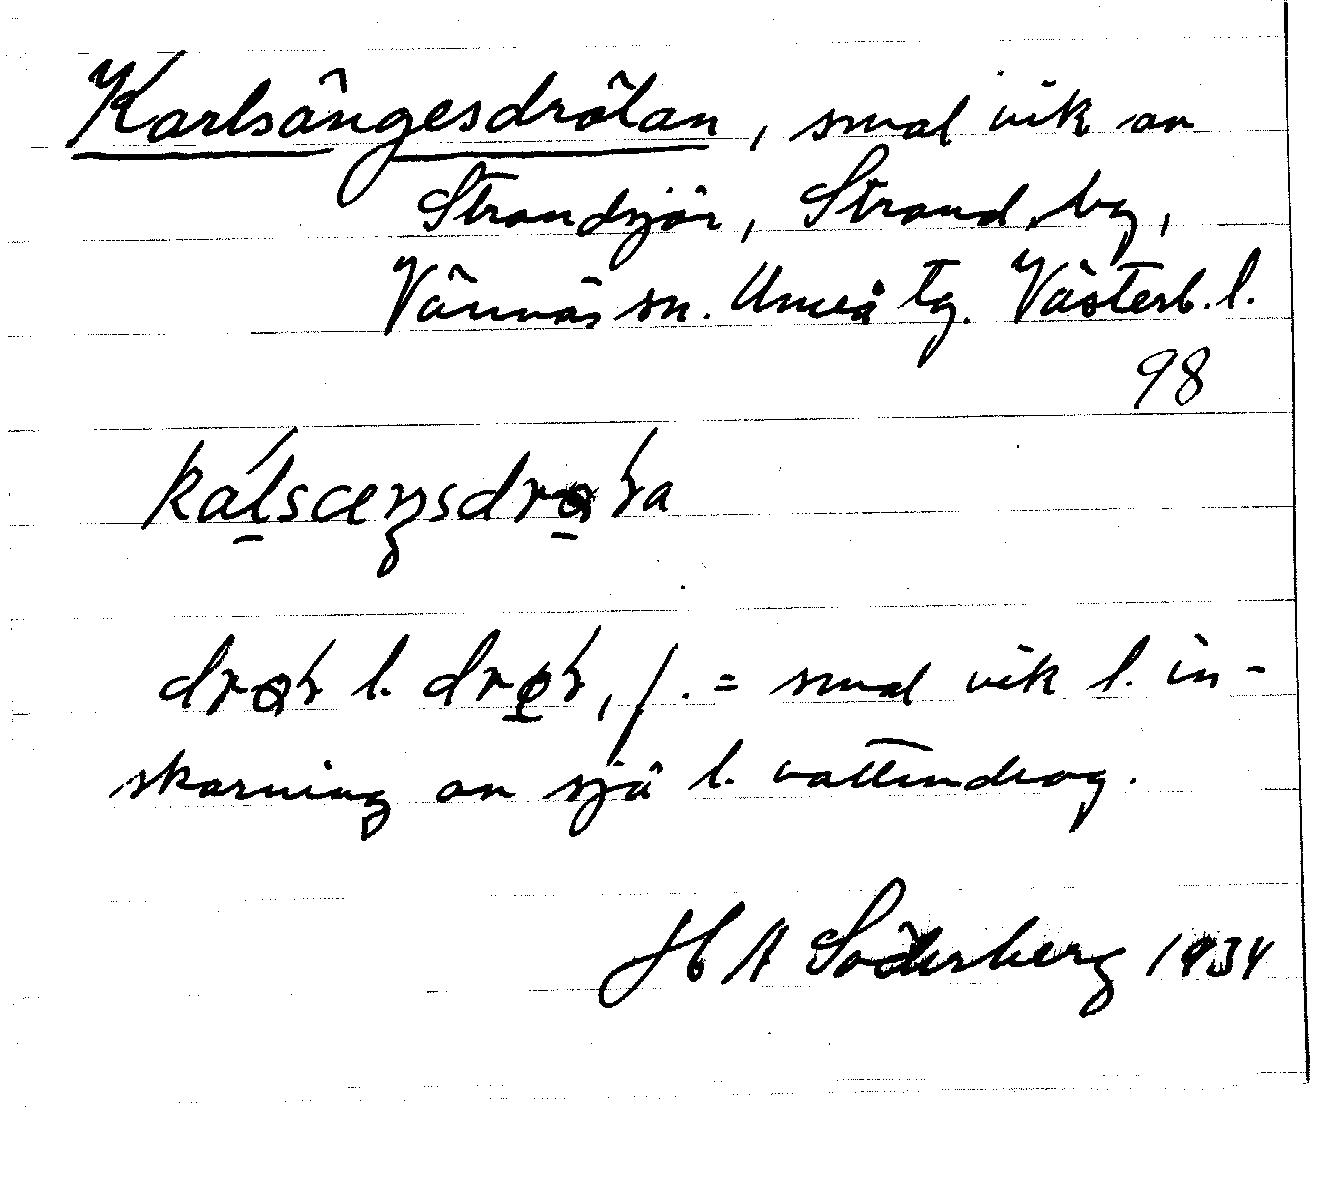 Karlsängesdrölan, smal vik av
Strandsjön, Strand by,
Vännäs sn. Umeå tg. Västerb. l.
98
l. , f. = smal vik l. in-
skärning av sjö l. vattendrag.
H A Söderberg 1934